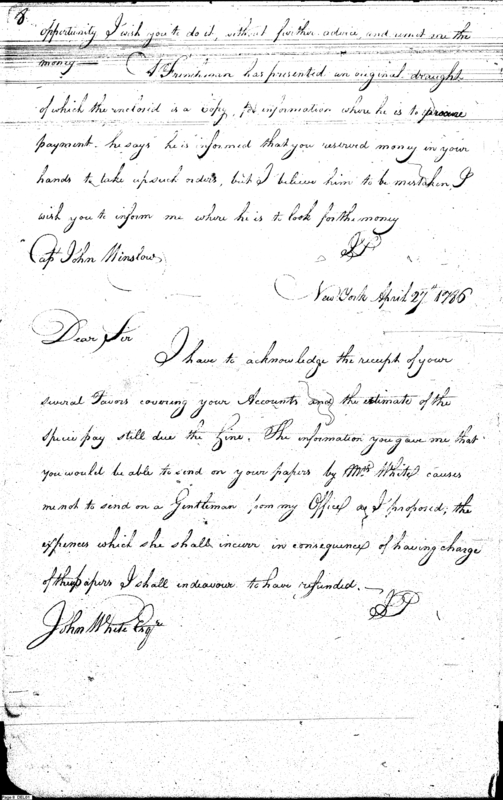 8
opportunity I wish you to do it, without further advice, and remit me the
money — A Frenchman has presented an original draught
of which the enclosed is a copy, for information where he is to procure
payment. he says he is informed that you reserved money in your
hands to take up such orders, but I believe him to be mistaken. I
wish you to inform me where he is to look for the money
Capt John Winslow
JP
New York April 27th 1786
Dear Sir
I have to acknowledge the receipt of your
several Favors covering your Accounts and the estimate of the
specie pay still due the Line. The information you gave me that
you would be able to send on your papers by Mrs White causes
me not to send on a Gentleman from my Office as I proposed; the
expences which she shall incurr in consequence of having charge
of the papers I shall endeavour to have refunded. —
JP
John White Esqr